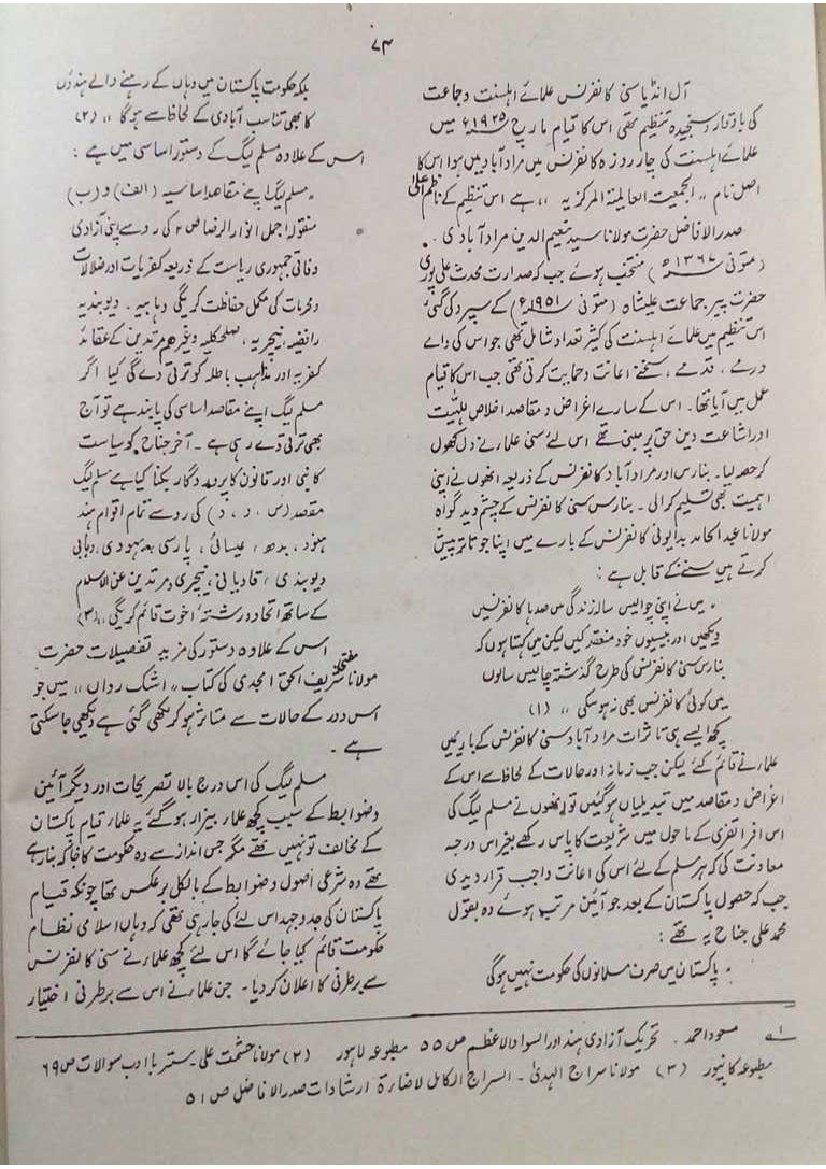 ۷۳
آل انڈیا سنی کانفرنس علمائے اہلسنت و جماعت
کی باوقار و سنجیدہ تنظیم تھی اس کا قیام مارچ ۱۹۲۵ء میں
علمائے اہلسنت کی چار روزہ کانفرنس میں مرادآباد میں ہوا اس کا
اصل نام ,, الجمعیت العالیۃ المرکزیہ ,, ہے اس تنظیم کے ناظم اعلیٰ
صدر الافاضل حضرت مولانا سید نعیم الدین مرادآبادی .
(متوفی ۱۳۶۷ھ) منتخب ہوئے جب کہ صدارت محدث علی پوری
حضرت پیر جماعت علیشاہ (متوفی ۱۹۵۱ء) کے سپرد کی گئی
اس تنظیم میں علمائے اہلسنت کی کثیر تعداد شامل تھی جو اس کی دامے
درمے ، قدمے ، سخنے اعانت و حمایت کرتی تھی جب اس کا قیام
عمل میں آیا تھا۔ اس کے سارے اغراض و مقاصد اخلاص للہیت
اور اشاعت دین حق پر مبنی تھے اس لئے سنی علماء نے دل کھول
کر حصہ لیا۔ بنارس اور مرادآباد کانفرنس کے ذریعہ انھوں نے اپنی
اہمیت بھی تسلیم کرالی ۔ بنارس سنی کانفرنس کے چشم دید گواہ
مولانا عبدالحامد بدایونی کانفرنس کے بارے میں اپنا جو تاثر پیش
کرتے ہیں سننے کے قابل ہے :
,, میں نے اپنی چوالیس سالہ زندگی میں صدہا کانفرنسیں
دیکھیں اور بیسیوں خود منعقد کیں لیکن میں کہتا ہوں کہ
بنارس سنی کانفرنس کی طرح گذشتہ چالیس سالوں
میں کوئی کانفرنس بھی نہ ہوسکی ,, (۱)
کچھ ایسے ہی تاثرات مرادآباد سنی کانفرنس کے بارے میں
علماء نے قائم کئے لیکن جب زمانہ اور حالات کے لحاظ سے اس کے
اغراض و مقاصد میں تبدیلیاں ہوگئیں تو انھوں نے مسلم لیگ کی
اس افراتفری کے ماحول میں شریعت کا پاس رکھے بغیر اس درجہ
معاونت کی کہ ہر مسلم کے لئے اس کی اعانت واجب قرار دیدی
جب کہ حصول پاکستان کے بعد جو آئین مرتب ہوئے وہ بقول
محمد علی جناح یہ تھے :
,, پاکستان میں صرف مسلمانوں کی حکومت نہیں ہوگی
بلکہ حکومت پاکستان میں وہاں کے رہنے والے ہندؤں
کا بھی تناسب آبادی کے لحاظ سے ہوگا ,, (۲)
اس کے علاوہ مسلم لیگ کے دستور اساسی میں ہے :
,, مسلم لیگ اپنے مقاصد اساسیہ (الف) و (ب)
منقولہ اجمل انوار الرضا ص ۴ کی رو سے اپنی آزادی
وفاقی جمہوری ریاست کے ذریعہ کفریات اور ضلالات
و حرمات کی مکمل حفاظت کریگی وہابیہ . دیوبندیہ
رافضیہ نیچریہ ، صلحکلیہ وغیرھم مرتدین کے عقائد
کفریہ اور مذاہب باطلہ کو ترقی دے گی کیا اگر
مسلم لیگ اپنے مقاصد اساسی کی پابند ہے تو آج
بھی ترقی دے رہی ہے ۔ آخر جناح کو سیاست
کا نبی اور قانون کا پروردگار بکنا کیا ہے مسلم لیگ
مقصد (س ، و ، د) کی رو سے تمام اقوام ہند
ہنود ، بدھ ، عیسائی ، پارسی یہودی ، وہابی
دیوبندی ، قادیانی ، نیچری و مرتدین عن الاسلام
کے ساتھ اتحاد و رشتۂ اخوت قائم کریگی ,, (۳)
اس کے علاوہ دستور کی مزید تفصیلات حضرت
مولانا مفتی محمد شریف الحق امجدی کی کتاب ,, اشک رواں ,, میں جو
اس دور کے حالات سے متاثر ہوکر لکھی گئی ہے دیکھی جاسکتی
ہے ۔
مسلم لیگ کی اس درج بالا تصریحات اور دیگر آئین
و ضوابط کے سبب کچھ علماء بیزار ہوگئے یہ علماء قیام پاکستان
کے مخالف تو نہیں تھے مگر جس انداز سے وہ حکومت کا خاکہ بنا رہے
تھے وہ شرعی اصول و ضوابط کے بالکل برعکس تھا چونکہ قیام
پاکستان کی جدوجہد اس لئے کی جارہی تھی کہ وہاں اسلامی نظام
حکومت قائم کیا جائے گا اس لئے کچھ علماء نے سنی کانفرنس
سے برطرفی کا اعلان کردیا ۔ جن علماء نے اس سے برطرفی اختیار
۱؎ مسعود احمد ۔ تحریک آزادی ہند اور السواد الاعظم ص ۵۵ مطبوعہ لاہور (۲) مولانا حشمت علی ۔ ستر با ادب سوالات ص ۶۹
مطبوعہ کانپور (۳) مولانا سراج الہدیٰ ۔ السراج الکامل لاضارۃ ارشادات صدر الافاضل ص ۵۱